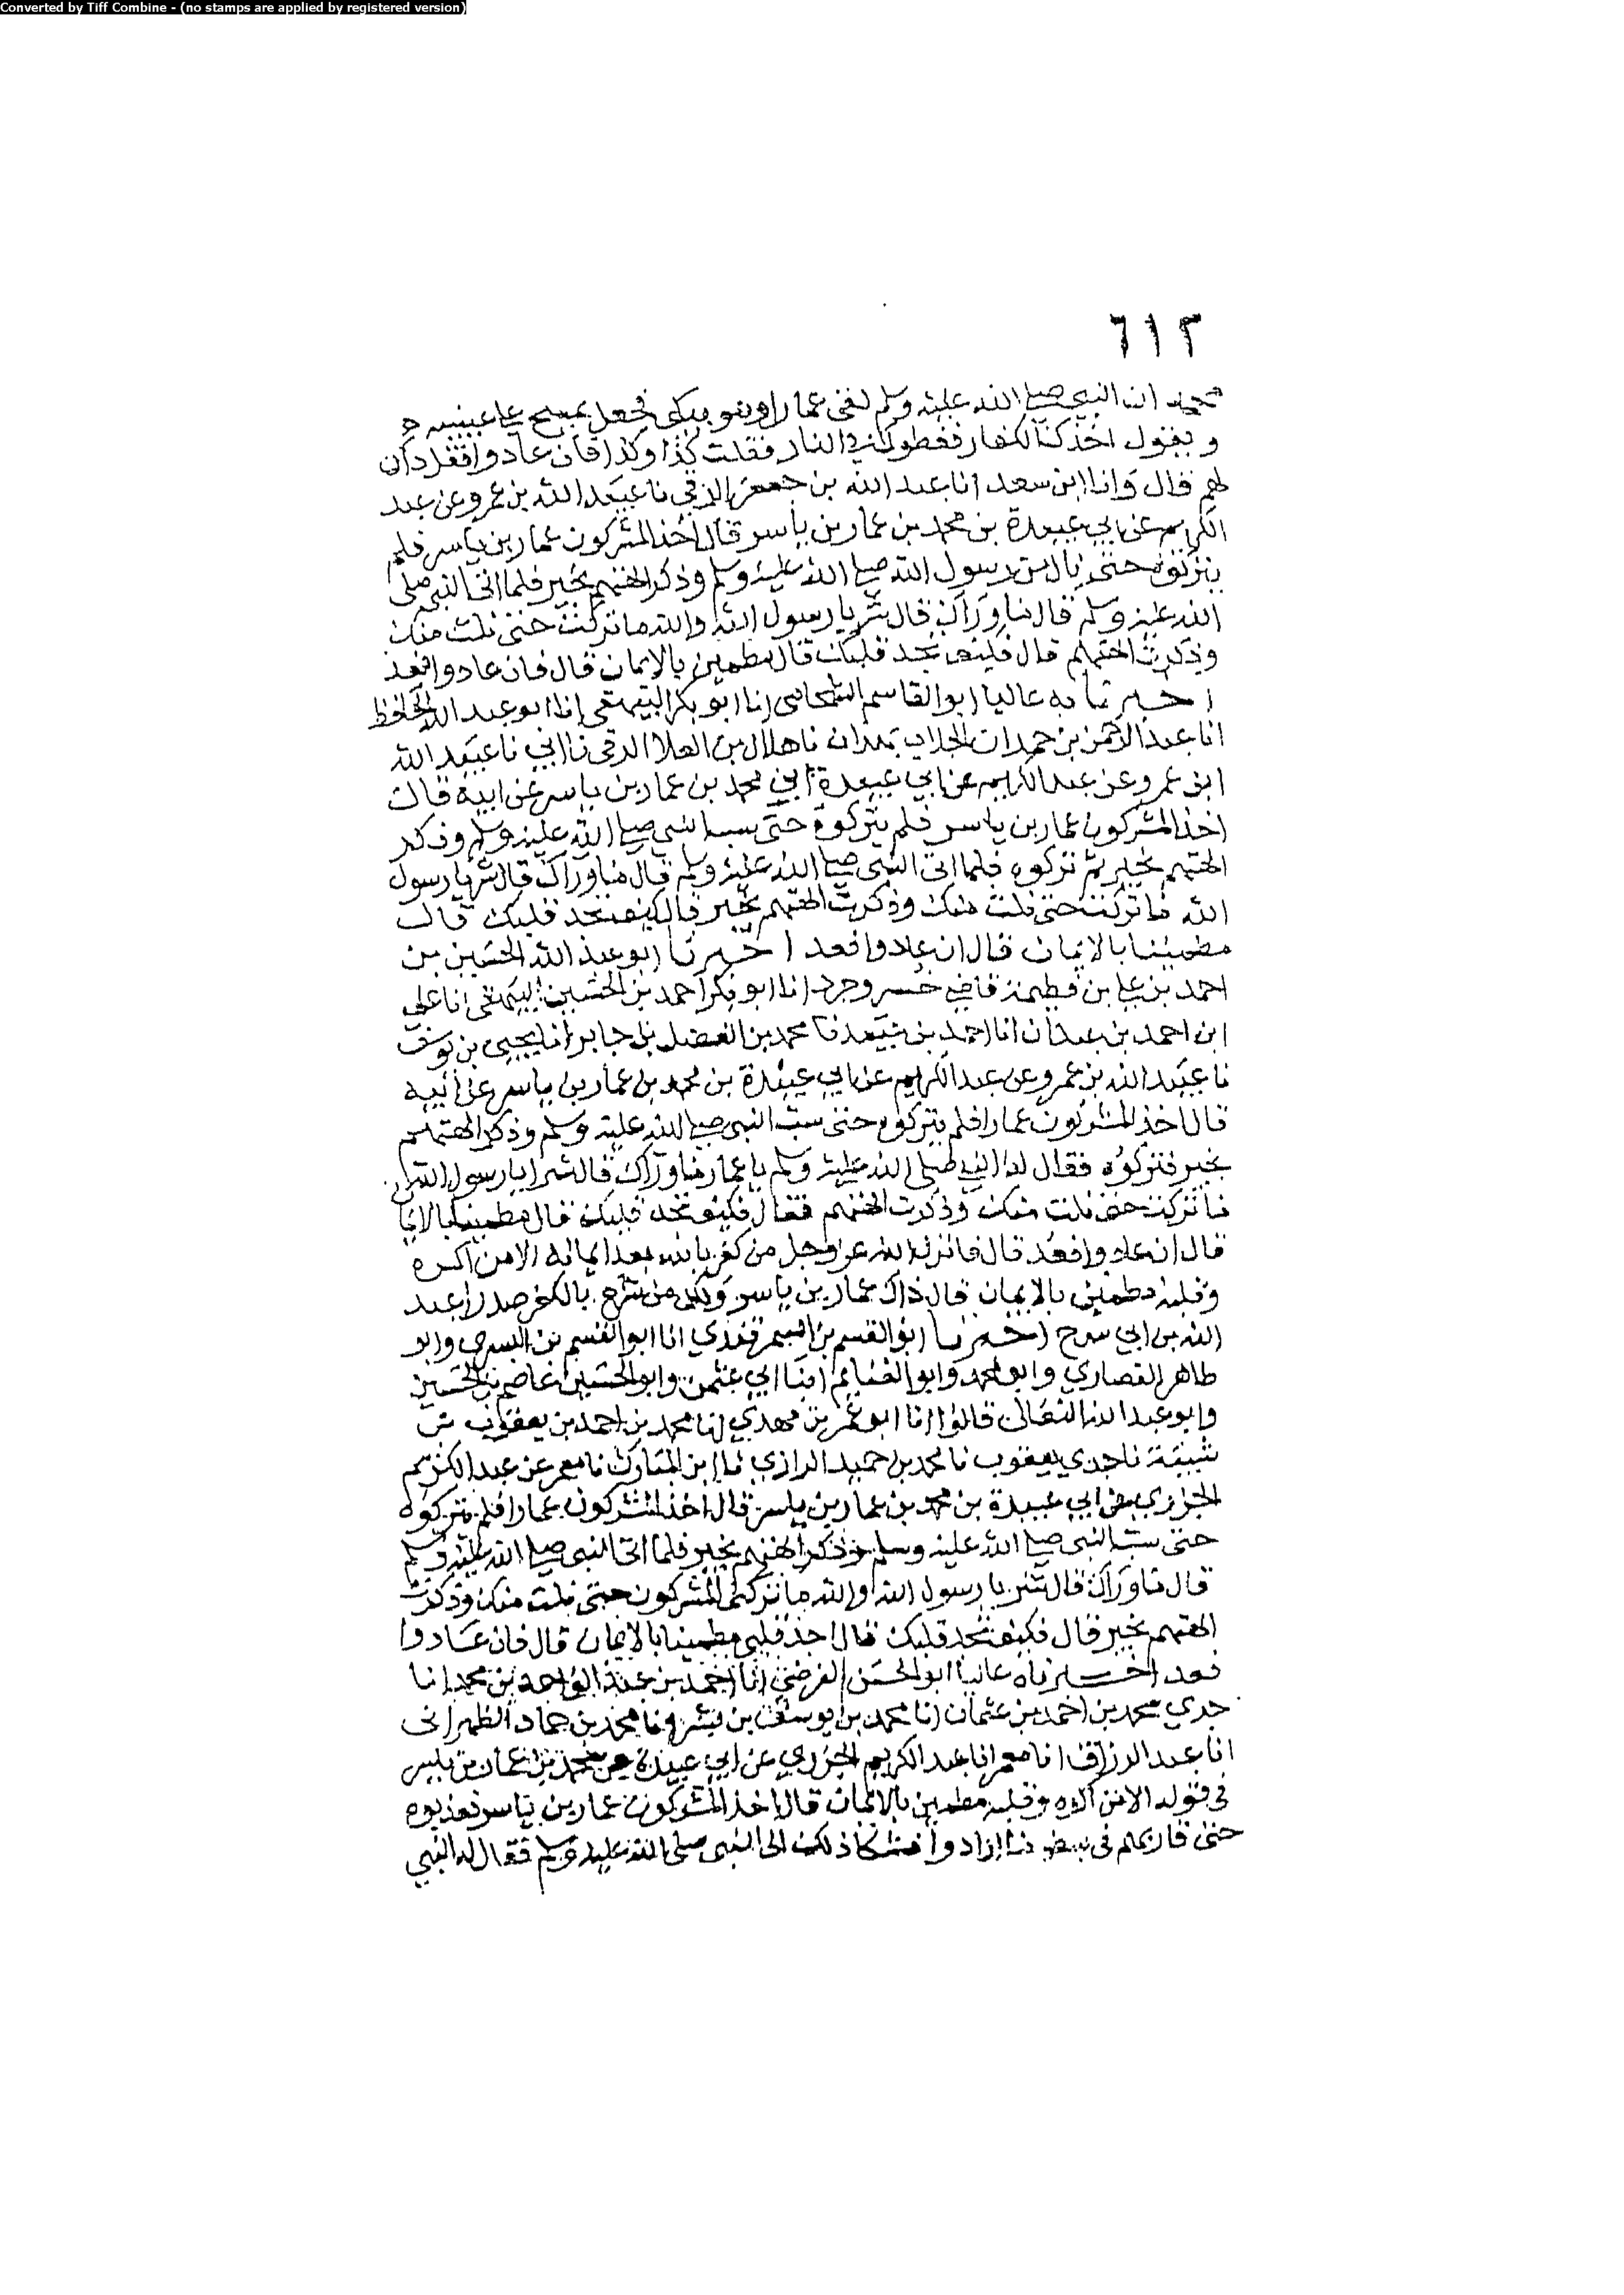 Converted by Tiff Combine - (no stamps are applied by registered version)
٦١٢
محمد ان النبي صلى الله عليه وسلم لقى عمارا وهو يبكى فجعل يمسح عن عينيه
ويقول اخذك الكفار فغطوك في النار فقلت كذا وكذا فان عادوا فقل ذان
لهم قال وانا ابن سعد انا عبد الله بن جعفر الرقي نا عبيد الله بن عمرو عن عبد
الكريم عن ابي عبيدة بن محمد بن عمار بن ياسر قال اخذ المشركون عمار بن ياسر فلم
يتركوه حتى نال من رسول الله صلى الله عليه وسلم وذكر الهتهم بخير فلما اتى النبي صلى
الله عليه وسلم قال ما وراك قال شر يا رسول الله والله ما تركت حتى نلت منك
وذكرت الهتهم قال فكيف تجد قلبك قال مطمين بالايمان قال فان عادوا فعد
اخبرنا به عاليا ابو القاسم الشحامى انا ابو بكر البيهقي انا ابو عبد الله الحافظ
انا عبد الرحمن بن حمدان الجلاب بهمدان نا هلال بن العلا الرقى نا ابي نا عبيد الله
ابن عمرو عن عبد الكريم عن ابي عبيدة ابن محمد بن عمار بن ياسر عن ابيه قال
اخذ المشركون عمار بن ياسر فلم يتركوه حتى سب النبي صلى الله عليه وسلم وذكر
الهتهم بخير ثم تركوه فلما اتى النبي صلى الله عليه وسلم قال ما وراك قال شر يا رسول
الله ما تركت حتى نلت منك وذكرت الهتهم بخير قال كيف تجد قلبك قال
مطمينا بالايمان قال ان عادوا فعد اخبرنا ابو عبد الله الحسين بن
احمد بن علي بن فطيمة قاضي خسروجرد انا ابو بكر احمد بن الحسين البيهقي انا علي
ابن احمد بن عبدان انا احمد بن عبيد نا محمد بن الفضل بن جابر نا يحيى بن يوسف
نا عبيد الله بن عمرو عن عبد الكريم عن ابي عبيدة بن محمد بن عمار بن ياسر عن ابيه
قال اخذ المشركون عمارا فلم يتركوه حتى سب النبي صلى الله عليه وسلم وذكر الهتهم
بخير فتركوه فقال له النبي صلى الله عليه وسلم يا عمار ما وراك قال شر يا رسول الله
ما تركت حتى نلت منك وذكرت الهتهم فقال فكيف تجد قلبك قال مطمينا بالايما
قال ان عادوا فعد قال فانزل الله عز وجل من كفر بالله بعد ايمانه الا من اكره
وقلبه مطمين بالايمان قال ذاك عمار بن ياسر ولكن من شرح بالكفر صدرا عبد
الله بن ابي سرح اخبرنا ابو القسم بن السمرقندي انا ابو القسم بن البسري وابو
طاهر القصاري وابو محمد وابو الغنايم ابنا ابي عثمن وابو الحسين عاصم بن الحسين
وابو عبد الله النعالى قالوا انا ابو عمر بن مهدي انا محمد بن احمد بن يعقوب بن
شيبة نا جدي يعقوب نا محمد بن حميد الرازي نا ابن المبارك نا معمر عن عبد الكريم
الجزري عن ابي عبيدة بن محمد بن عمار بن ياسر قال اخذ المشركون عمارا فلم يتركوه
حتى سب النبي صلى الله عليه وسلم وذكر الهتهم بخير فلما اتى النبي صلى الله عليه وسلم
قال ما وراك قال شر يا رسول الله والله ما تركنى المشركون حتى نلت منك وذكرت
الهتهم بخير قال فكيف تجد قلبك قال اجد قلبي مطمينا بالايمان قال فان عادوا
فعد اخبرناه عاليا ابو الحسن الفرضي انا احمد بن عبد الواحد بن محمد انا
جدي محمد بن احمد بن عثمان انا محمد بن يوسف بن بشر نا محمد بن حماد الظهرانى
انا عبد الرزاق انا معمر انا عبد الكريم الجزري عن ابي عبيدة بن محمد بن عمار بن ياسر
في قوله الا من اكره وقلبه مطمين بالايمان قال اخذ المشركون عمار بن ياسر فعذبوه
حتى قاربهم في بعض ما ارادوا فشكا ذلك الى النبي صلى الله عليه وسلم فقال له النبي